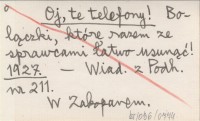 Oj, te telefony! Bo-
lączki, które razem ze
sprawcami łatwo usunąć!
1927. — Wiad. z Podh.
nr 211.
W Zakopanem.